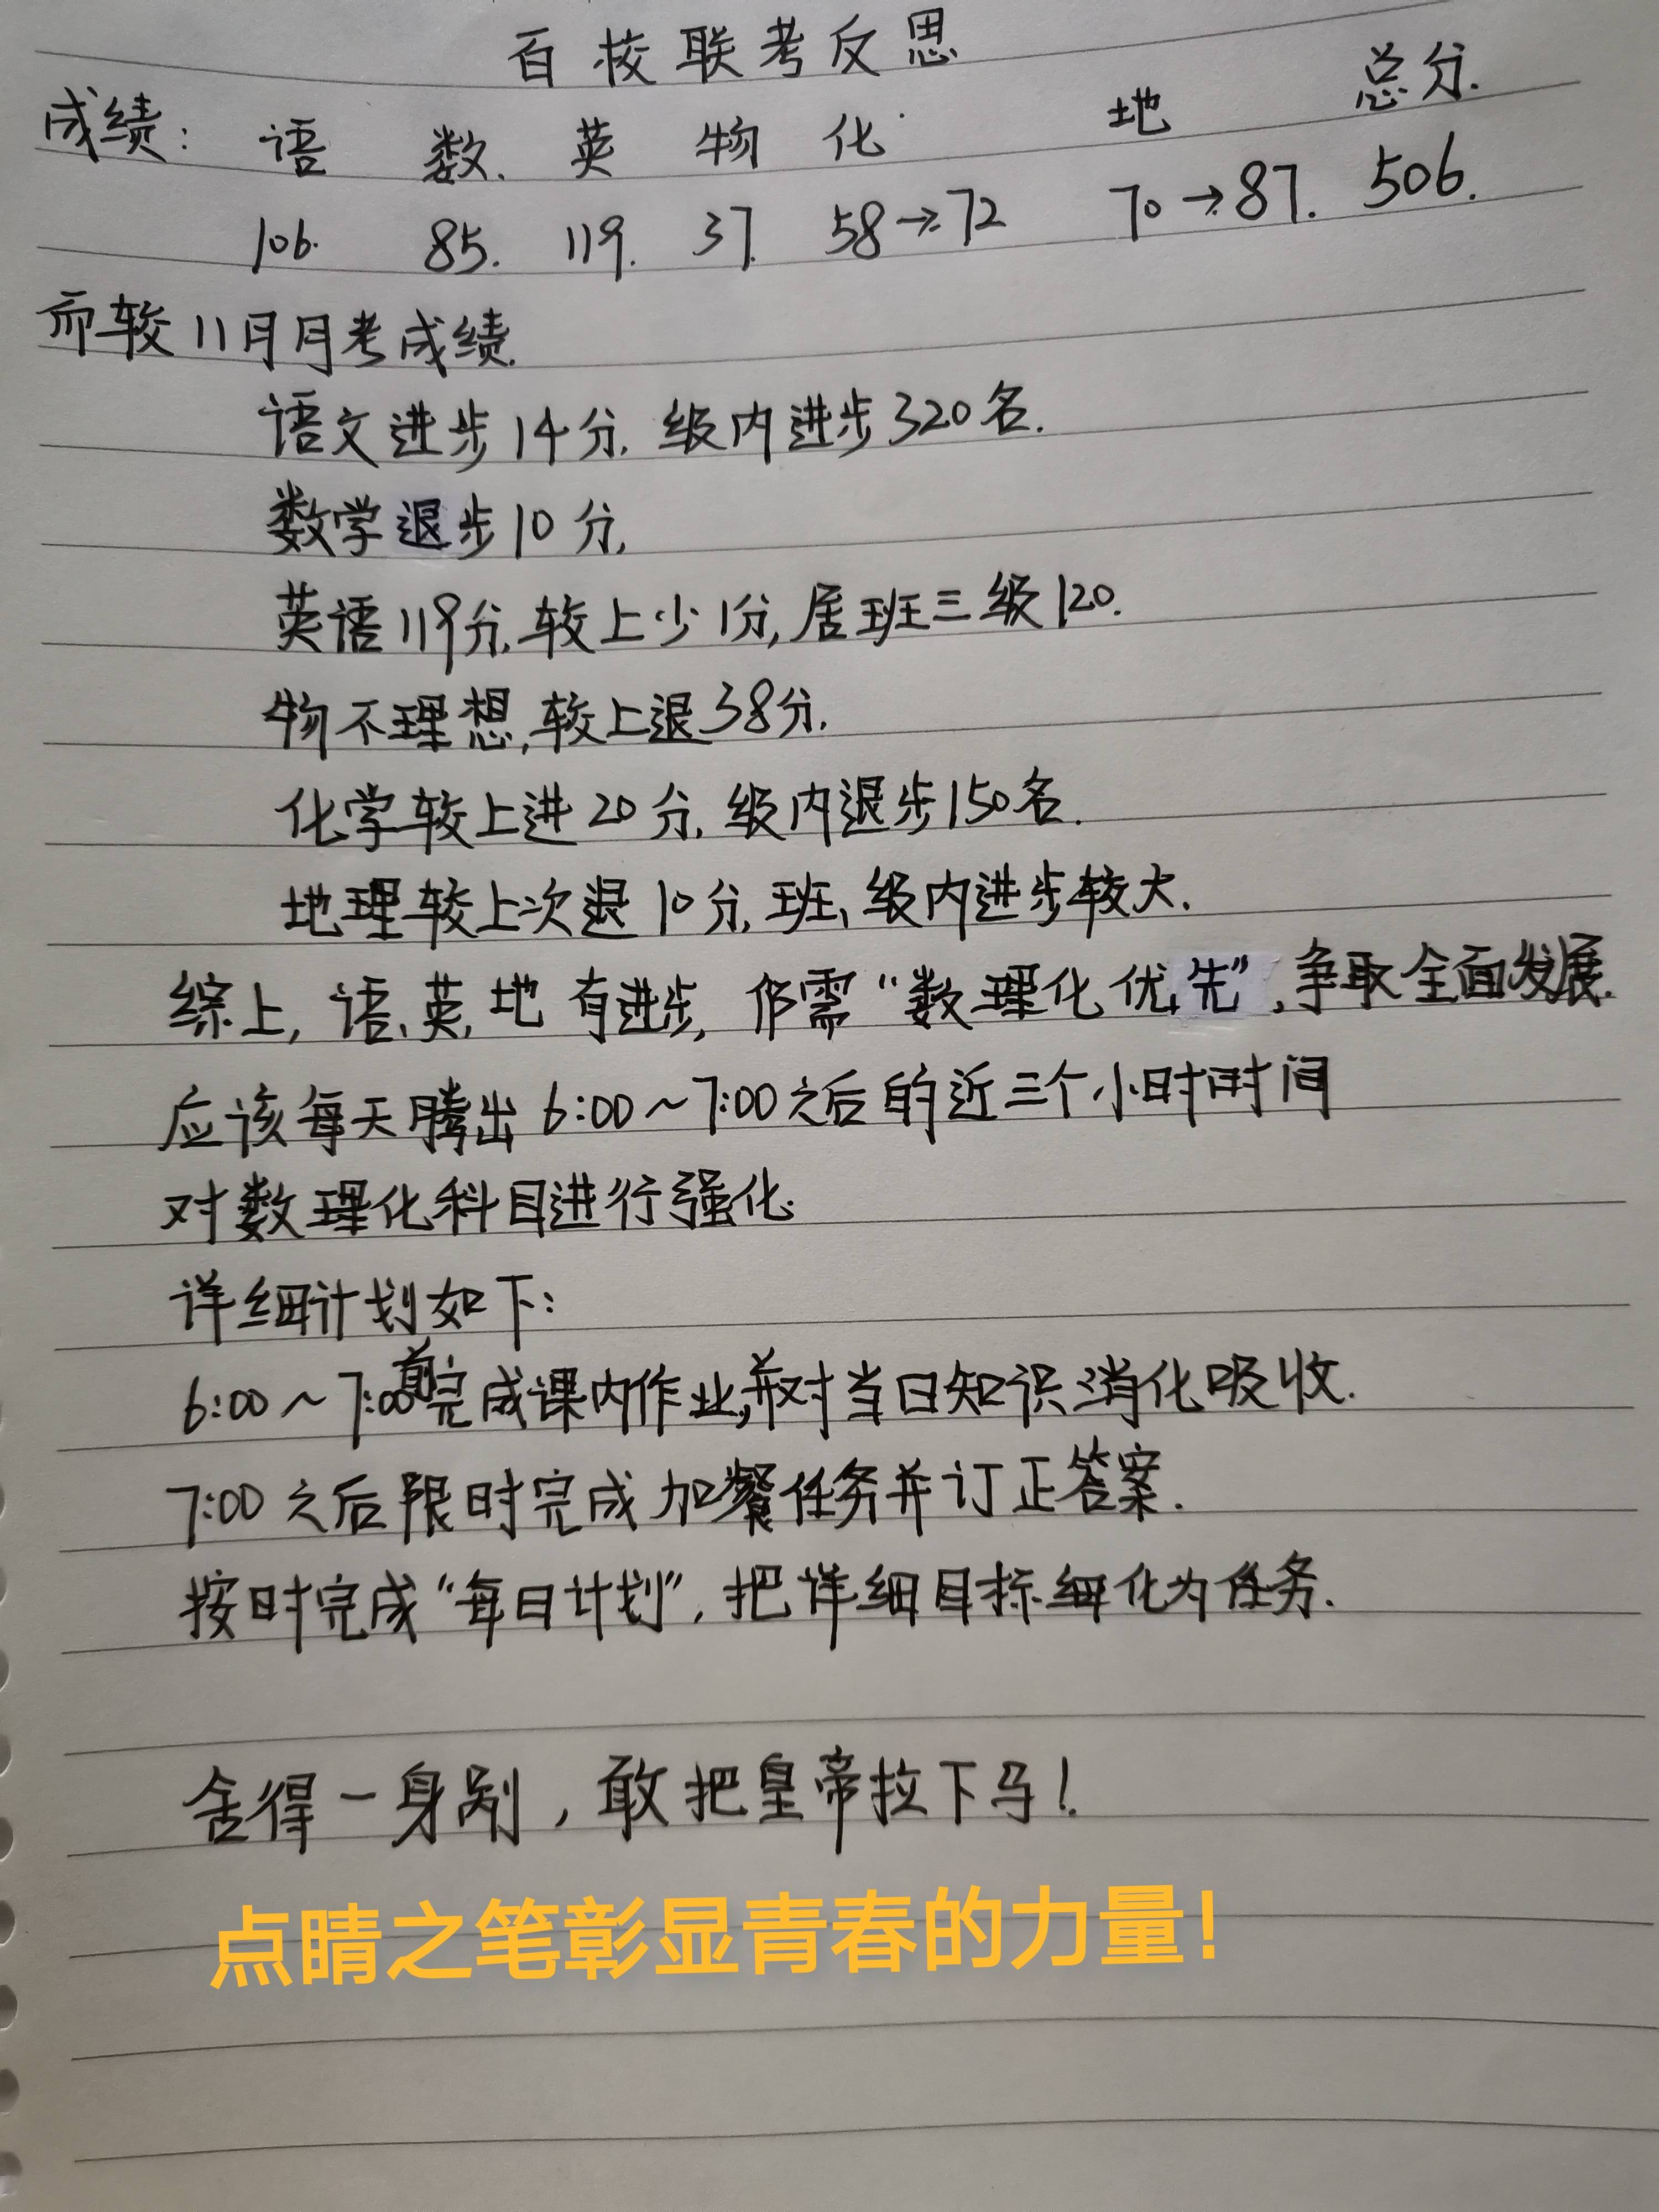 百校联考反思
成绩: 语 数. 英 物 化 地 总分.
106. 85. 119. 37. 58→72 70→87. 506.
而较11月月考成绩.
语文进步14分, 级内进步320名.
数学退步10分,
英语119分, 较上少1分, 居班三级120.
物不理想, 较上退38分.
化学较上进20分, 级内退步150名.
地理较上次退10分, 班、级内进步较大.
综上, 语、英、地 有进步, 仍需“数理化优先”, 争取全面发展.
应该每天腾出6:00~7:00之后的近三个小时时间
对数理化科目进行强化.
详细计划如下:
6:00~7:00前完成课内作业,并对当日知识消化吸收.
7:00之后限时完成加餐任务并订正答案.
按时完成“每日计划”, 把详细目标细化为任务.
舍得一身剐, 敢把皇帝拉下马!
点睛之笔彰显青春的力量!